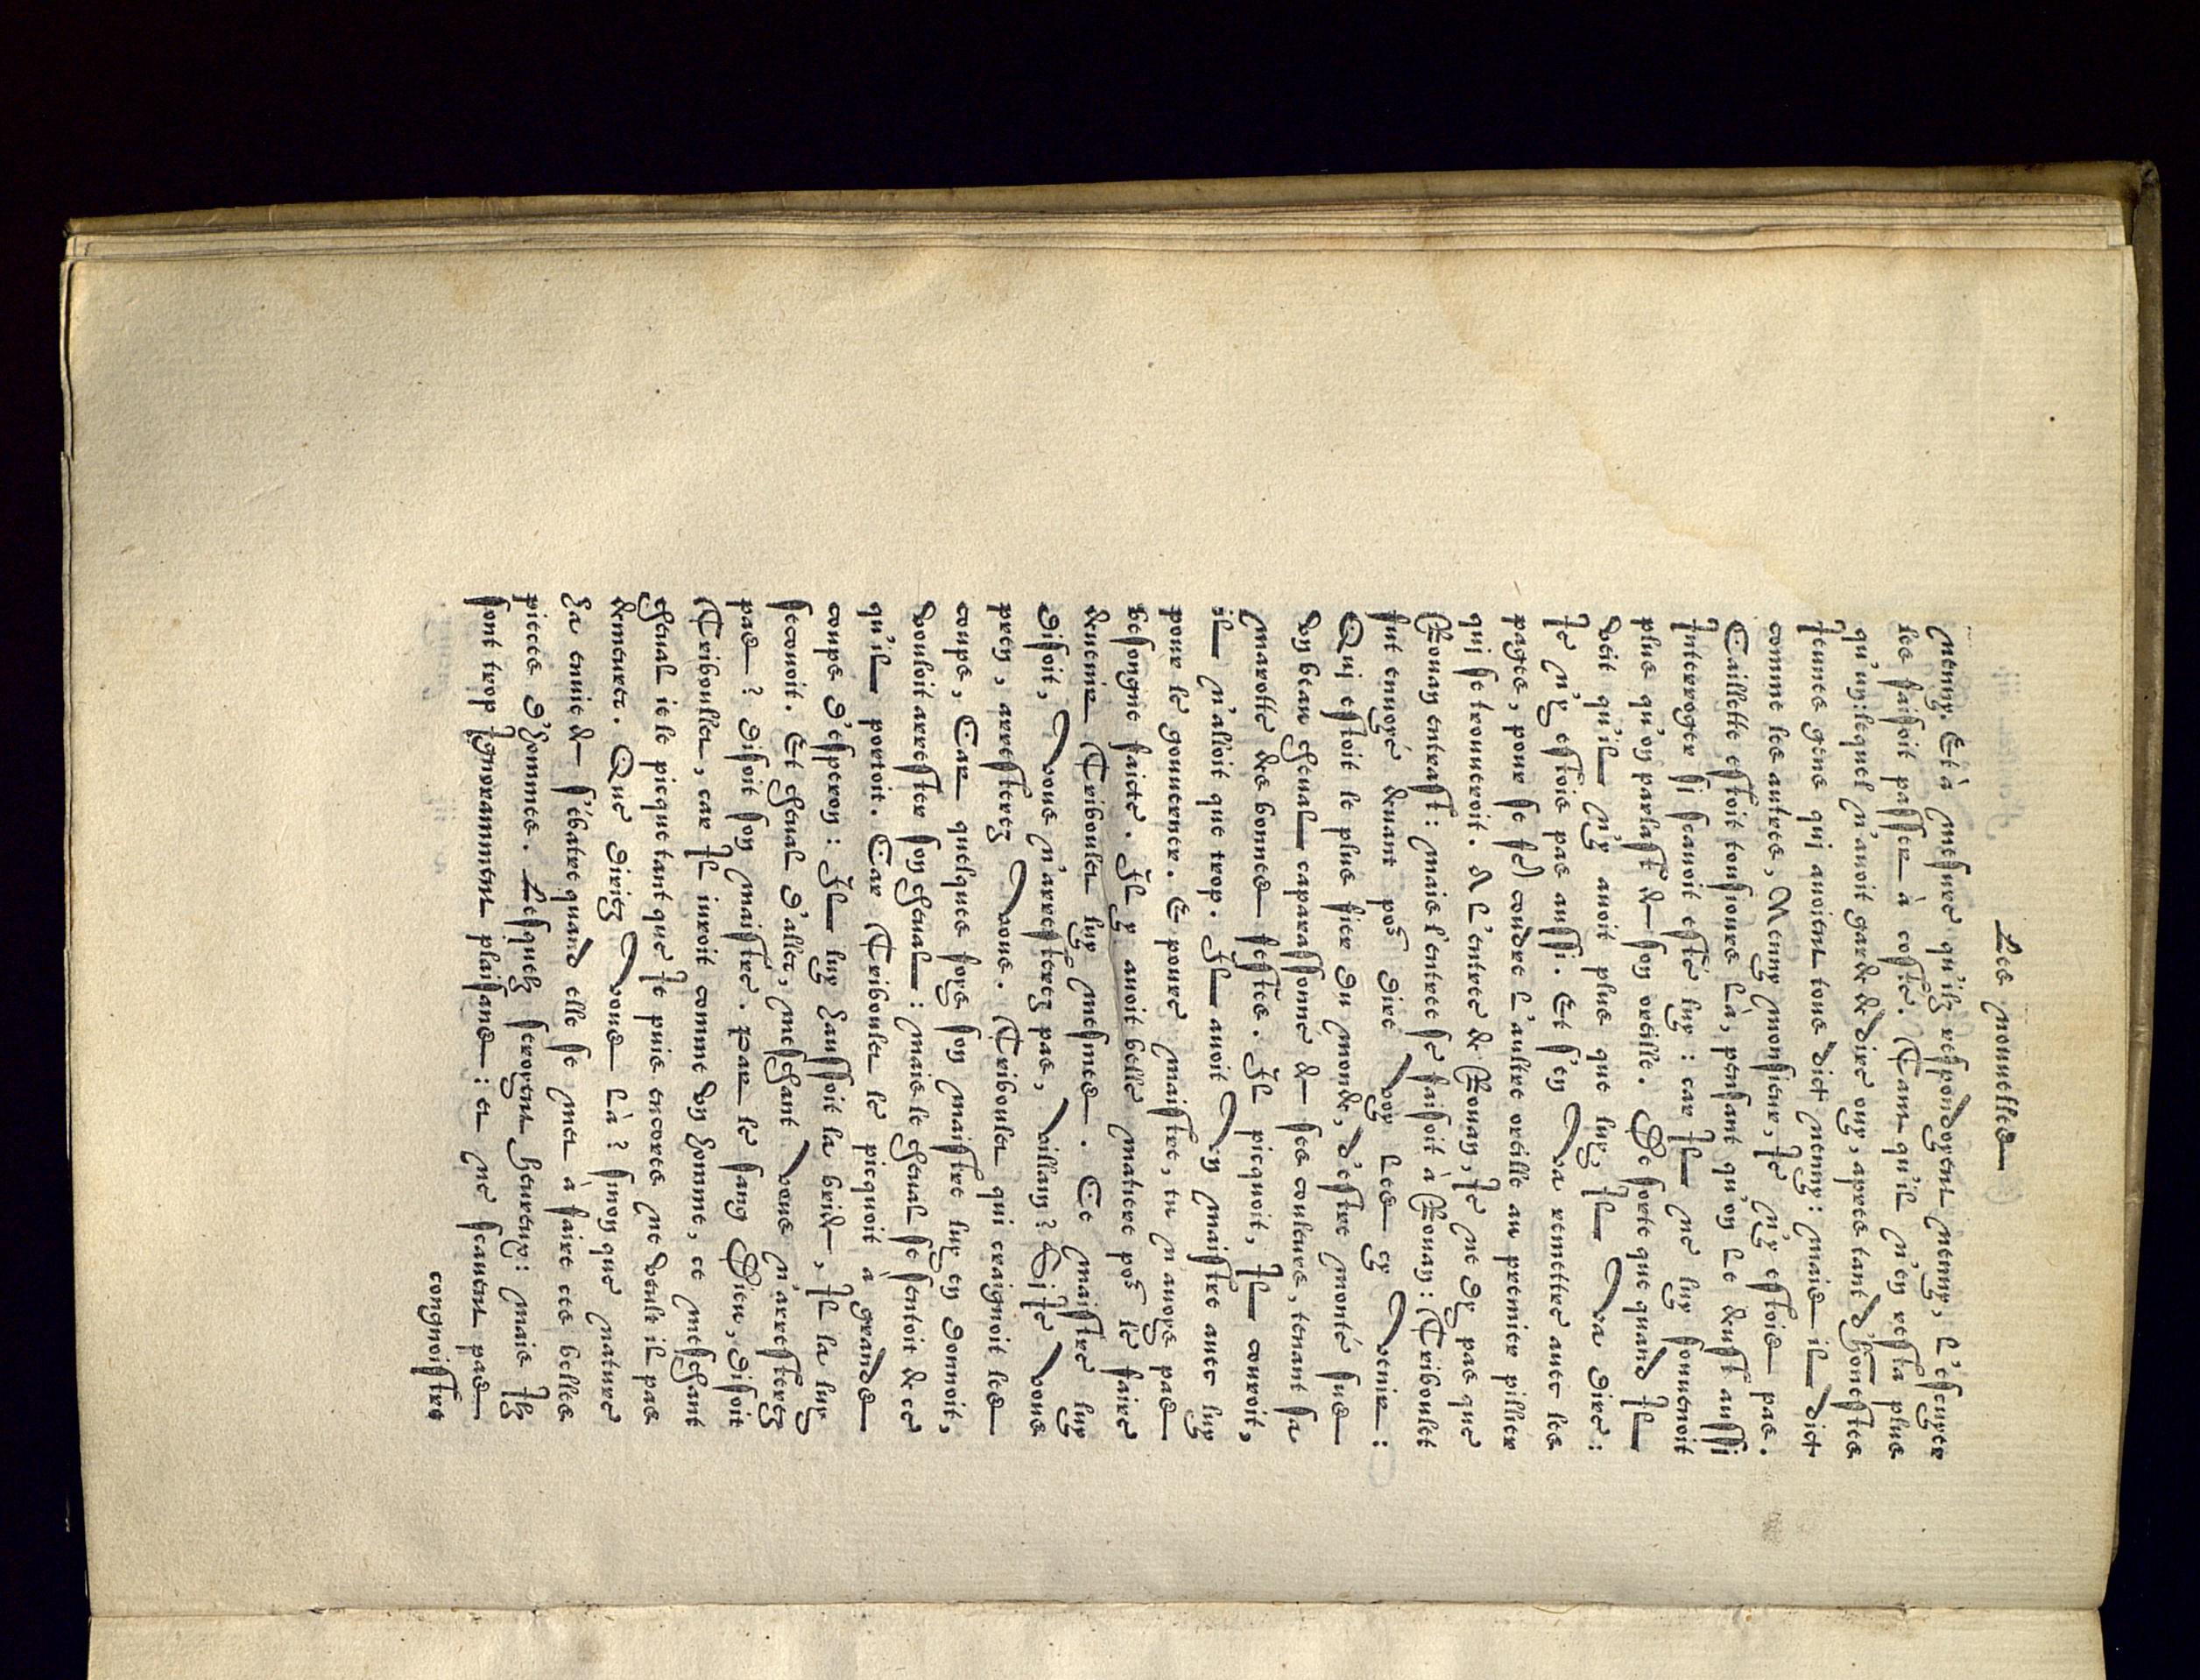 Les nouuelles
nenny. Et à mesure qu'ilz respondoyent nenny, l'escuyer
les faisoit passer à costé. Tant qu'il n'en resta plus
qu'un: lequel n'auoit garde de dire ouy, apres tant d'honestes
Ieunes gens qui auoient tous dict nenny: mais il dict
comme les autres, Nenny monsieur, Ie n'y estois pas.
Caillette estoit tousiours là, pensant qu'on le deust aussi
Interroger si scauoit esté luy: car Il ne luy souuenoit
plus qu'on parlast de son oreille. De sorte que quand Il
veit qu'il n'y auoit plus que luy, Il va dire:
Ie n'y estois pas aussi. Et s'en va remettre auec les
pages, pour se fe) coudre l'aultre oreille au premier pillier
qui se trouueroit. A l'entree de Rouay, Ie ne dy pas que
Rouay entrast: mais l'entree se faisoit à Rouay: Triboulet
fut enuoyé deuant poᵘ dire voy les cy venir:
Qui estoit le plus fier du monde, d'estre monté sus
vn beau cheual caparassonné de ses couleurs, tenant sa
marotte des bonnes festes. Il picquoit, Il couroit,
il n'alloit que trop. Il auoit vn maistre auec luy
pour le gouuerner. E poure maistre, tu n'auoys pas
besongne faicte. Il y auoit belle matiere poᵘ le faire
deuenir Triboulet luy mesmes. Ce maistre luy
disoit, vous n'arresterez pas, villain? Si Ie vous
pren, arresterez vous. Triboulet qui craignoit les
coups, Car quelques foys son maistre luy en donnoit,
vouloit arrester son cheual: mais le cheual se sentoit de ce
qu'il portoit. Car Triboulet le picquoit à grands
coups d'esperon: Il luy haussoit la bride, Il la luy
secouoit. Et cheual d'aller, meschant vous n'arresterez
pas? disoit son maistre. par le sang Dieu, disoit
Triboullet, car Il iuroit comme vn homme, ce meschant
cheual ie le picque tant que Ie puis encores ne veult il pas
demeurer. Que diriez vous là? sinon que nature
ha enuie de s'ébatre quand elle se met à faire ces belles
pieces d'hommes. Lesquelz seroyent heureux: mais Ilz
sont trop Ignoramment plaisans: et ne scauent pas
congnoistre